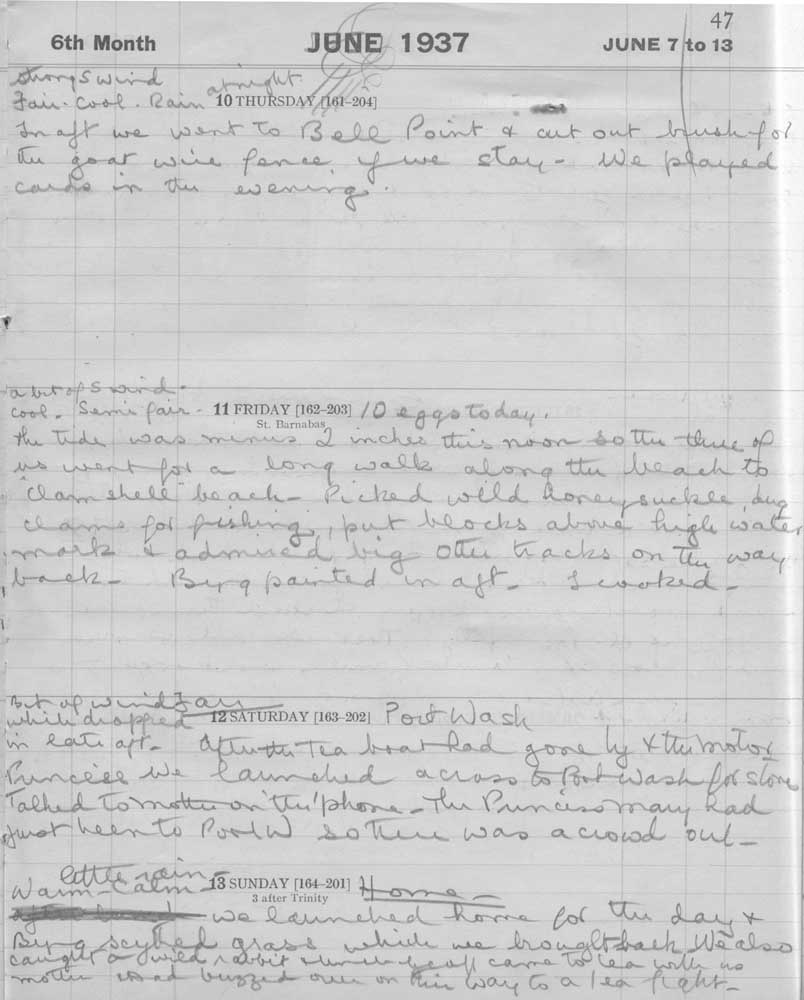 47
6th Month JUNE 1937 JUNE 7 to 13
strong S wind
Fair. Cool. Rain at night 10 THURSDAY [161–204]
In aft we went to Bell Point & cut out brush for
the goat wire fence, if we stay – We played
cards in the evening.
a bit of S wind.
cool. Semi fair – 11 FRIDAY [162–203] 10 eggs today.
St. Barnabas
The tide was minus 2 inches this noon so the three of
us went for a long walk along the beach to
"Clam shell" beach – Picked wild honeysuckle, dug
clams for fishing, put blocks above high water
mark & admired big otter tracks on the way
back – Byng painted in aft – I cooked –
Bit of wind Fair
which dropped 12 SATURDAY [163–202] Port Wash
in late aft – After the Tea boat had gone by & the motor
Princess we launched across to Port Wash for store
Talked to mother on the 'phone – The Princess Mary had
just been to Port W so there was a crowd out –
little rain –
Warm – Calm – 13 SUNDAY [164–201] Home –
3 after Trinity
we launched home for the day &
Byng scythed grass which we brought back. We also
caught a wild rabbit Geoff came to tea with us
mother had buzzed over on their way to a tea fight –